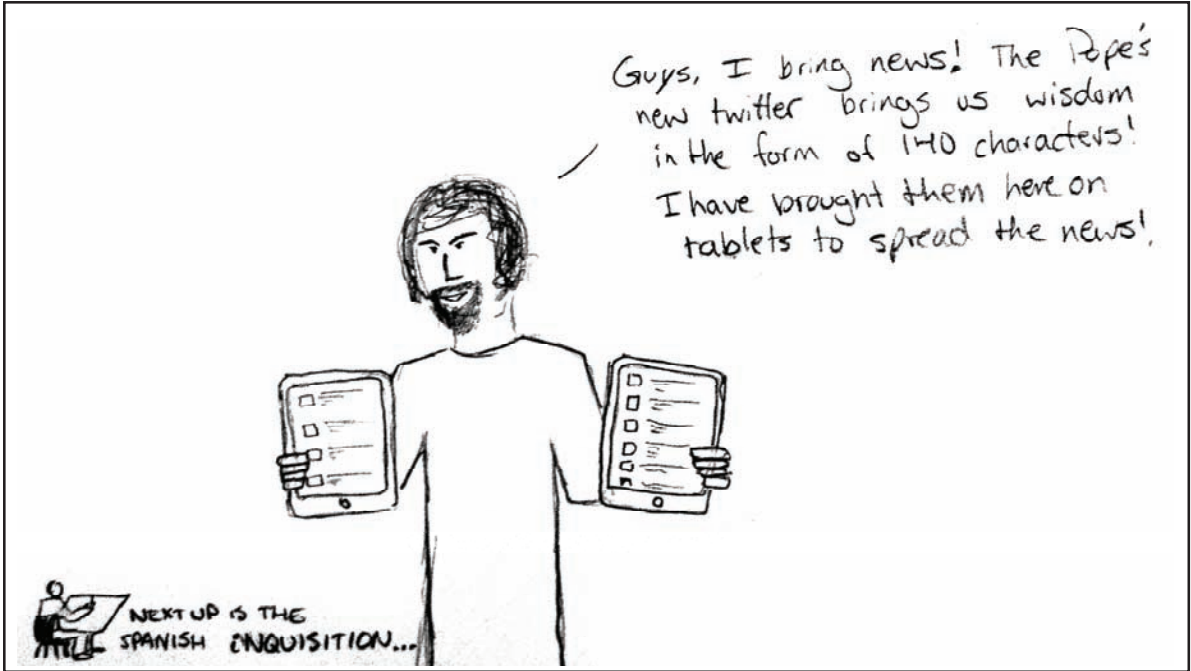 Guys, I bring news! The Pope's
new twitter brings us wisdom
in the form of 140 characters!
I have brought them here on
tablets to spread the news!
NEXT UP IS THE
SPANISH INQUISITION...